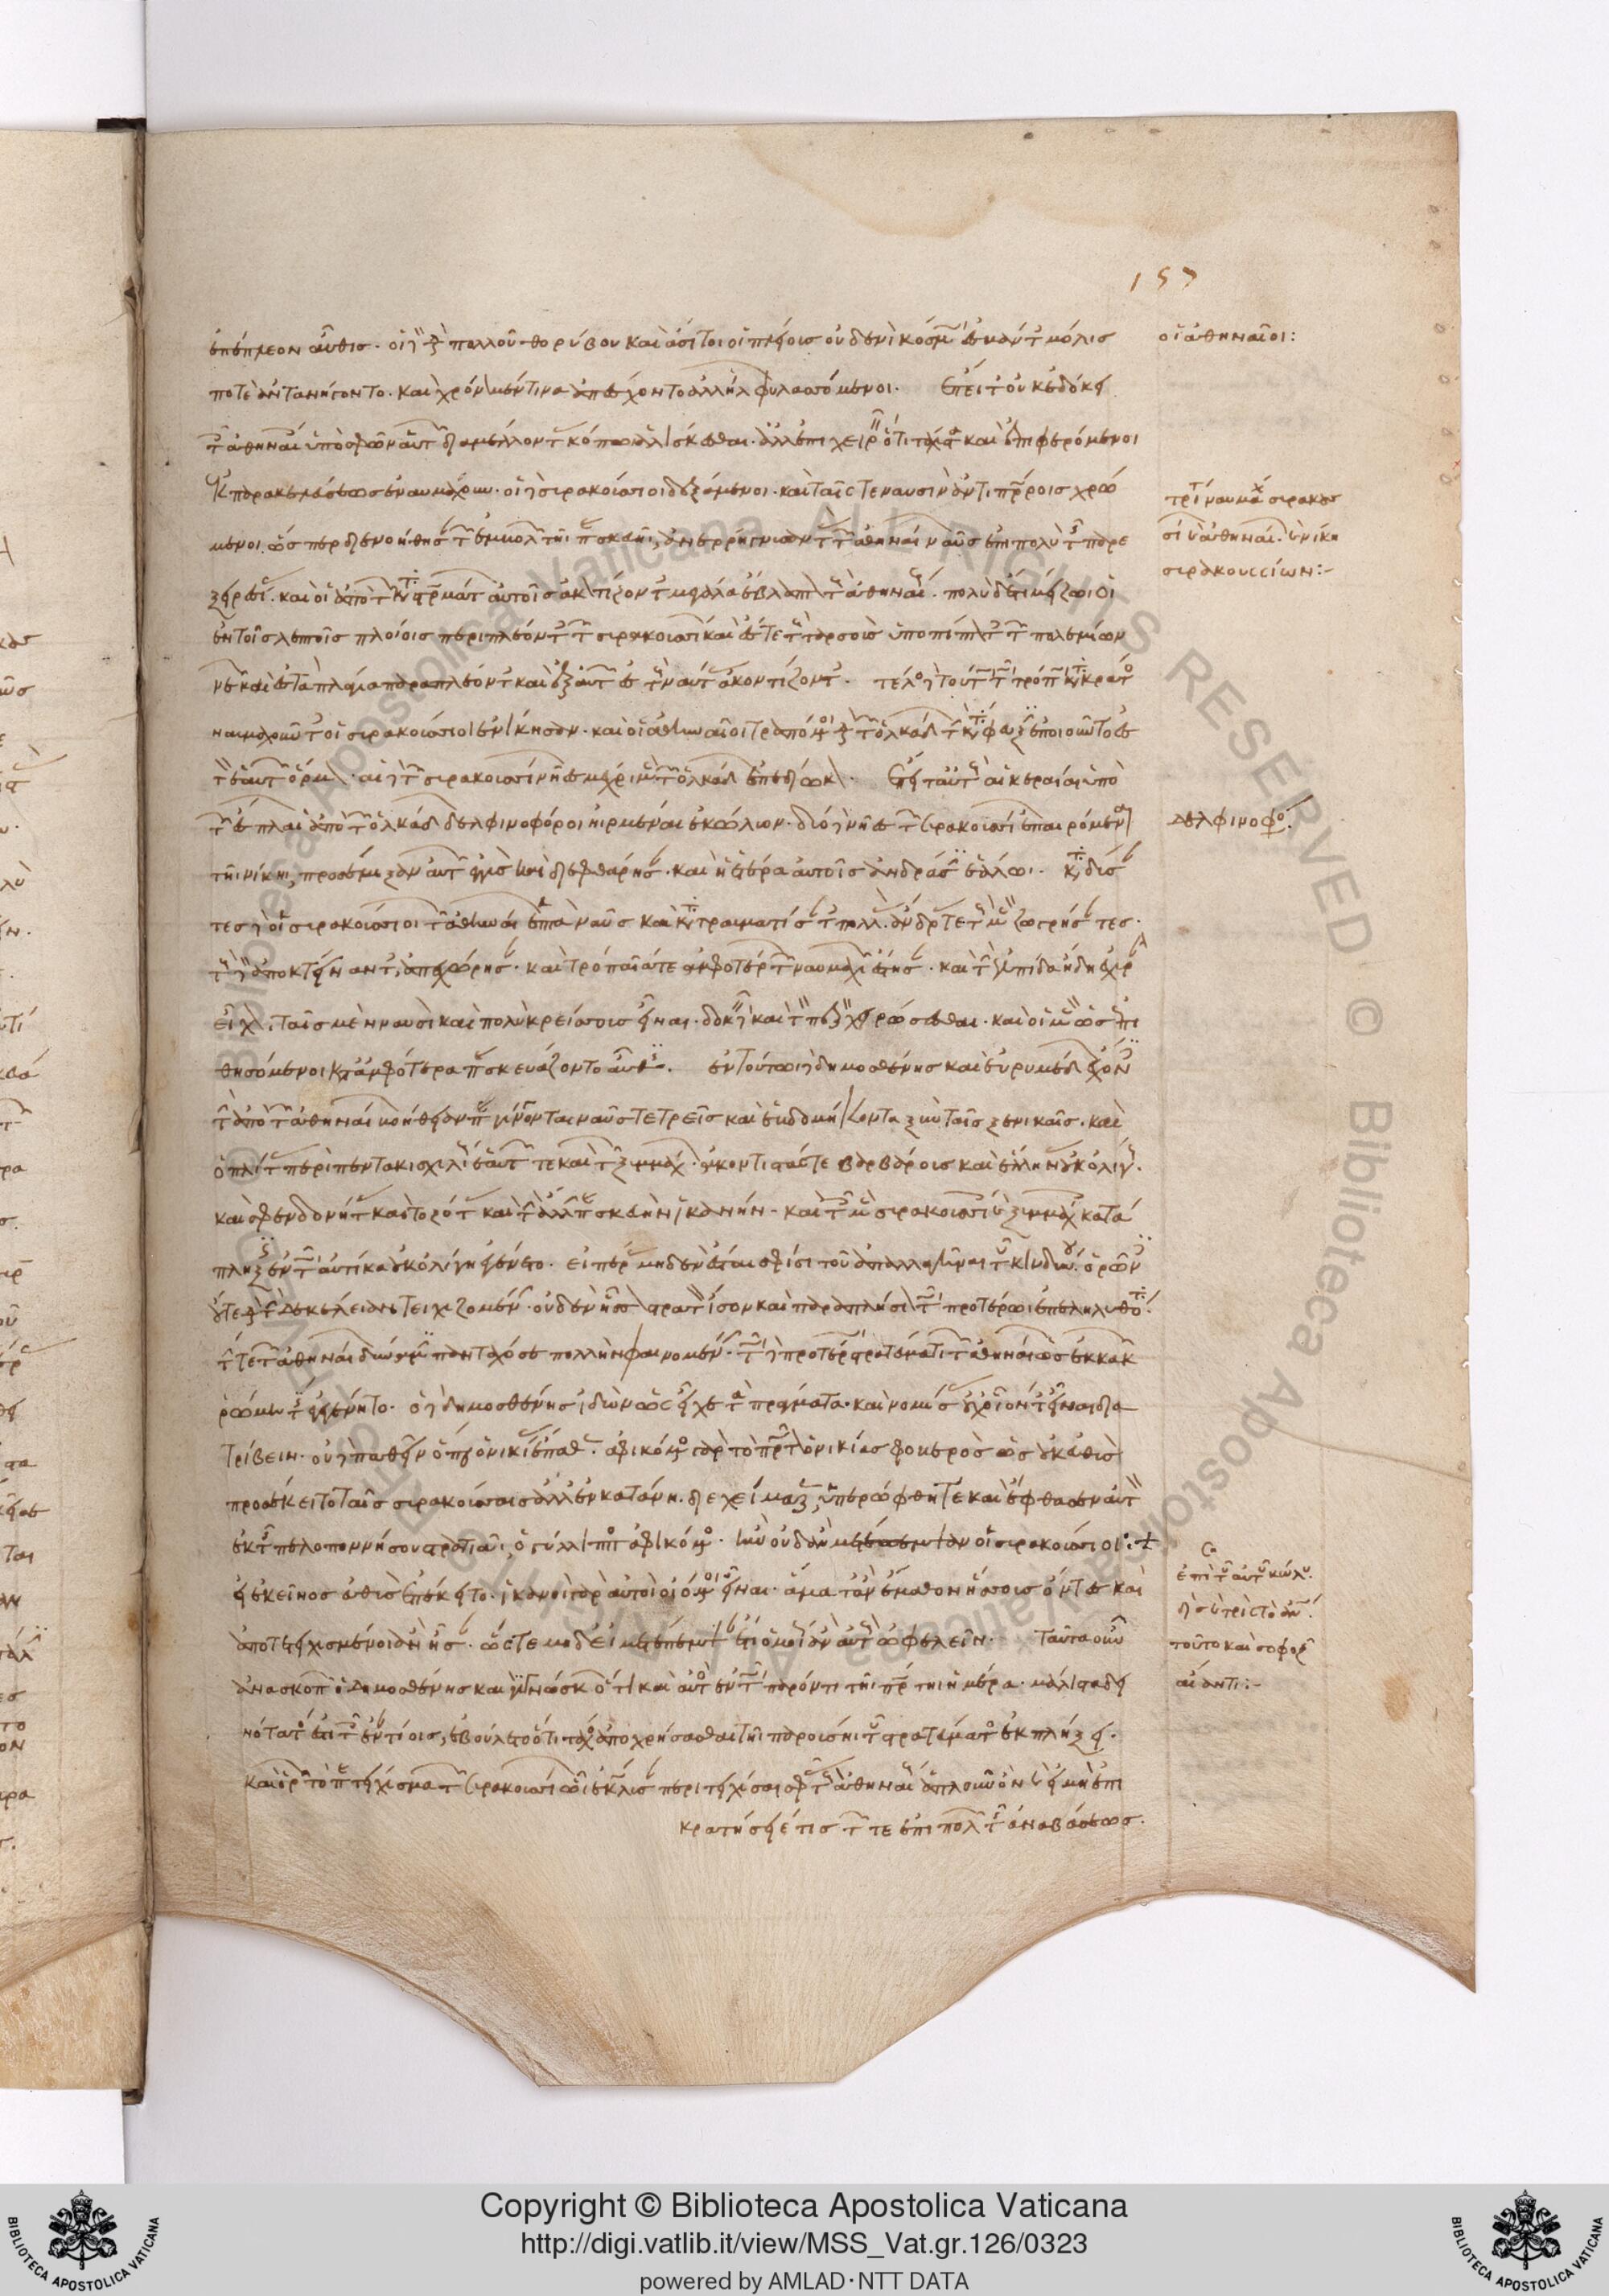 ἐπέπλεον αὖθις. οἱ δὲ διὰ πολλοῦ θορύβου καὶ ἄσιτοι οἱ πλείους οὐδενὶ κόσμῳ ἐσβάντες μόλις
ποτὲ ἀντανήγοντο. καὶ χρόνον μέν τινα ἀπέσχοντο ἀλλήλων φυλασσόμενοι. ἔπειτα οὐκ ἐδόκει
τοῖς ἀθηναίοις ὑπὸ σφῶν αὐτῶν διαμέλλοντας κόπωι ἁλίσκεσθαι. ἀλλ' ἐπιχειρεῖν ὅτι τάχιστα καὶ ἐπιφερόμενοι
ἐκ παρακελεύσεως ἐναυμάχουν. οἱ δὲ συρακούσιοι δεξάμενοι. καὶ ταῖς τε ναυσὶν ἀντιπρώροις χρώ
μενοι ὥσπερ διενοήθησαν τῶν ἐμβόλων τῆι παρασκευῆι, ἀνερρήγνυσαν τὰς τῶν ἀθηναίων ναῦς ἐπὶ πολὺ τῆς παρε
ξειρεσίας. καὶ οἱ ἀπὸ τῶν καταστρωμάτων αὐτοῖς ἀκοντίζοντες μεγάλα ἔβλαπτον τοὺς ἀθηναίους. πολὺ δ' ἔτι μείζω οἱ
ἐν τοῖς λεπτοῖς πλοίοις περιπλέοντες τῶν συρακουσίων καὶ ἔς τε τοὺς ταρσοὺς ὑποπίπτοντες τῶν πολεμίων
νεῶν καὶ ἐς τὰ πλάγια παραπλέοντες καὶ ἐξ αὐτῶν ἐς τοὺς ναύτας ἀκοντίζοντες. τέλος δὲ τούτωι τῶι τρόπωι κατὰ κράτος
ναυμαχοῦντες οἱ συρακούσιοι ἐνίκησαν. καὶ οἱ ἀθηναῖοι τραπόμενοι διὰ τῶν ὁλκάδων τὴν κατάφευξιν ἐποιοῦντο ἐς
τὸν ἑαυτῶν ὅρμον. αἱ δὲ τῶν συρακουσίων νῆες μέχρι μὲν τῶν ὁλκάδων ἐπεδίωκον. ἔπειτα αὐτοὺς αἱ κεραῖαι ὑπὲρ
τῶν ἔσπλων αἱ ἀπὸ τῶν ὁλκάδων δελφινοφόροι ἠρμέναι ἐκώλυον. δύο δὲ νῆες τῶν συρακουσίων ἐπαιρόμεναι
τῆι νίκηι, προσέμιξαν αὐτῶν ἐγγὺς καὶ διεφθάρησαν. καὶ ἡ ἑτέρα αὐτοῖς ἀνδράσιν ἑάλω. καταδύσαν
τες δὲ οἱ συρακούσιοι τῶν ἀθηναίων ἑπτὰ ναῦς καὶ κατατραυματίσαντες πολλὰς. ἄνδρας τε τοὺς μὲν ζωγρήσαντες.
τοὺς δὲ ἀποκτείναντες, ἀπεχώρησαν. καὶ τροπαῖά τε ἀμφοτέρων τῶν ναυμαχιῶν ἔστησαν. καὶ τὴν ἐλπίδα ἤδη ἐχυρὰν
εἶχον, ταῖς μὲν ναυσὶ καὶ πολὺ κρείσσους εἶναι. δοκεῖν δὲ καὶ τὸν πεζὸν χειρώσεσθαι. καὶ οἱ μὲν ὡς ἐπι
θησόμενοι κατ' ἀμφότερα παρεσκευάζοντο αὖθις. ἐν τούτωι δὲ δημοσθένης καὶ εὐρυμέδων ἔχοντες
τὴν ἀπὸ τῶν ἀθηναίων βοήθειαν παραγίγνονται ναῦς τε τρεῖς καὶ ἑβδομήκοντα ξὺν ταῖς ξενικαῖς. καὶ
ὁπλίτας περὶ πεντακισχιλίους ἑαυτῶν τε καὶ τῶν ξυμμάχων. ἀκοντιστάς τε βαρβάρους καὶ ἕλληνας οὐκ ὀλίγους.
καὶ σφενδονήτας καὶ τοξότας καὶ τὴν ἄλλην παρασκευὴν ἱκανήν. καὶ τοῖς μὲν συρακουσίοις καὶ ξυμμάχοις κατά
πληξις ἐν τῶι αὐτίκα οὐκ ὀλίγη ἐγένετο. εἰ πέρας μηδὲν ἔσται σφίσι τοῦ ἀπαλλαγῆναι τοῦ κινδύνου. ὁρῶντες
οὔτε διὰ τὴν δεκέλειαν τειχιζομένην. οὐδὲν ἧσσον στρατὸν ἴσον καὶ παραπλήσιον τῶι προτέρωι ἐπεληλυθότα.
τήν τε τῶν ἀθηναίων δύναμιν πανταχόσε πολλὴν φαινομένην. τῶι δὲ προτέρωι στρατεύματι τῶν ἀθηναίων ὡς ἐκ κακῶν
ῥώμη τις ἐγεγένητο. ὁ δὲ δημοσθένης ἰδὼν ὡς εἶχε τὰ πράγματα. καὶ νομίσας οὐχ οἷόν τε εἶναι δια
τρίβειν. οὐδὲ παθεῖν ὅπερ ὁ νικίας ἔπαθεν. ἀφικόμενος γὰρ τὸ πρῶτον ὁ νικίας φοβερὸς ὡς οὐκ εὐθὺς
προσέκειτο ταῖς συρακούσαις ἀλλ' ἐν κατάνηι διεχείμαζεν, ὑπερώφθη τε καὶ ἔφθασεν αὐτὸν
ἐκ τῆς πελοποννήσου στρατιᾶι, ὁ γύλιππος ἀφικόμενος. ἣν οὐδ' ἂν μετέπεμψαν οἱ συρακούσιοι:
εἰ ἐκεῖνος εὐθὺς ἐπέκειτο. ἱκανοὶ γὰρ αὐτοὶ οἰόμενοι εἶναι. ἅμα τ' ἂν ἔμαθον ἥσσους ὄντες καὶ
ἀποτετειχισμένοι ἂν ἦσαν. ὥστε μηδ' εἰ μετέπεμψαν ἔτι ὁμοίως ἂν αὐτοὺς ὠφελεῖν. ταῦτα οὖν
ἀνασκοπῶν ὁ δημοσθένης καὶ γιγνώσκων ὅτι καὶ αὐτὸς ἐν τῶι παρόντι τῆι πρώτηι ἡμέρα. μάλιστα δει
νότατός ἐστι τοῖς ἐναντίοις, ἐβούλετο ὅτι τάχος ἀποχρήσασθαι τῆι παρούσηι τοῦ στρατεύματος ἐκπλήξει.
καὶ ὁρῶν τὸ παρατείχισμα τῶν συρακουσίων ὧι ἐκώλυσαν περιτειχίσαι σφᾶς τοὺς ἀθηναίους ἁπλοῦν ὂν καὶ εἰ μὴ ἐπι
κρατήσειέ τις τῶν τε ἐπιπολῶν τῆς ἀναβάσεως.
157
οἱ ἀθηναῖοι:
τρίτη ναυμαχία συρακου
σίων καὶ ἀθηναίων. καὶ νίκη
συρακουσσίων:-
δελφινοφόροι.
τοῦτο καὶ σοφοκλ
αἴαντι:-
Copyright © Biblioteca Apostolica Vaticana
http://digi.vatlib.it/view/MSS_Vat.gr.126/0323
powered by AMLAD·NTT DATA
BIBLIOTECA APOSTOLICA VATICANA
BIBLIOTECA APOSTOLICA VATICANA